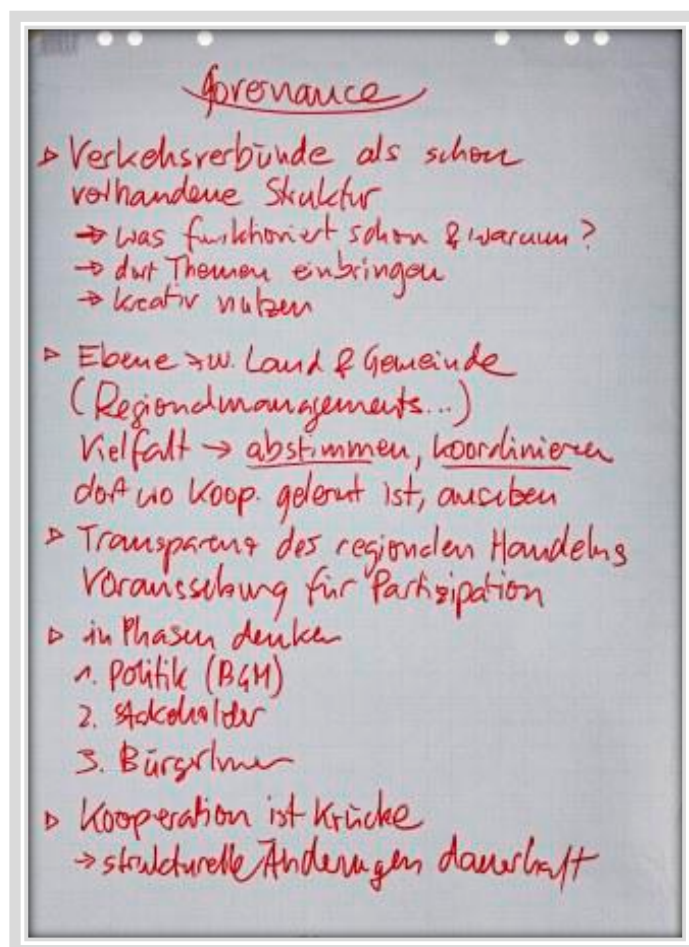 Governance
▷ Verkehrsverbünde als schon
vorhandene Struktur
→ was funktioniert schon & warum?
→ dort Themen einbringen
→ kreativ nutzen
▷ Ebene zw. Land & Gemeinde
(Regionalmanagements...)
Vielfalt → abstimmen, koordinieren
dort wo Koop. gelernt ist, ausüben
▷ Transparenz des regionalen Handelns
Voraussetzung für Partizipation
▷ in Phasen denken
1. Politik (BGM)
2. Stakeholder
3. BürgerInnen
▷ Kooperation ist Krücke
→ strukturelle Änderungen dauerhaft